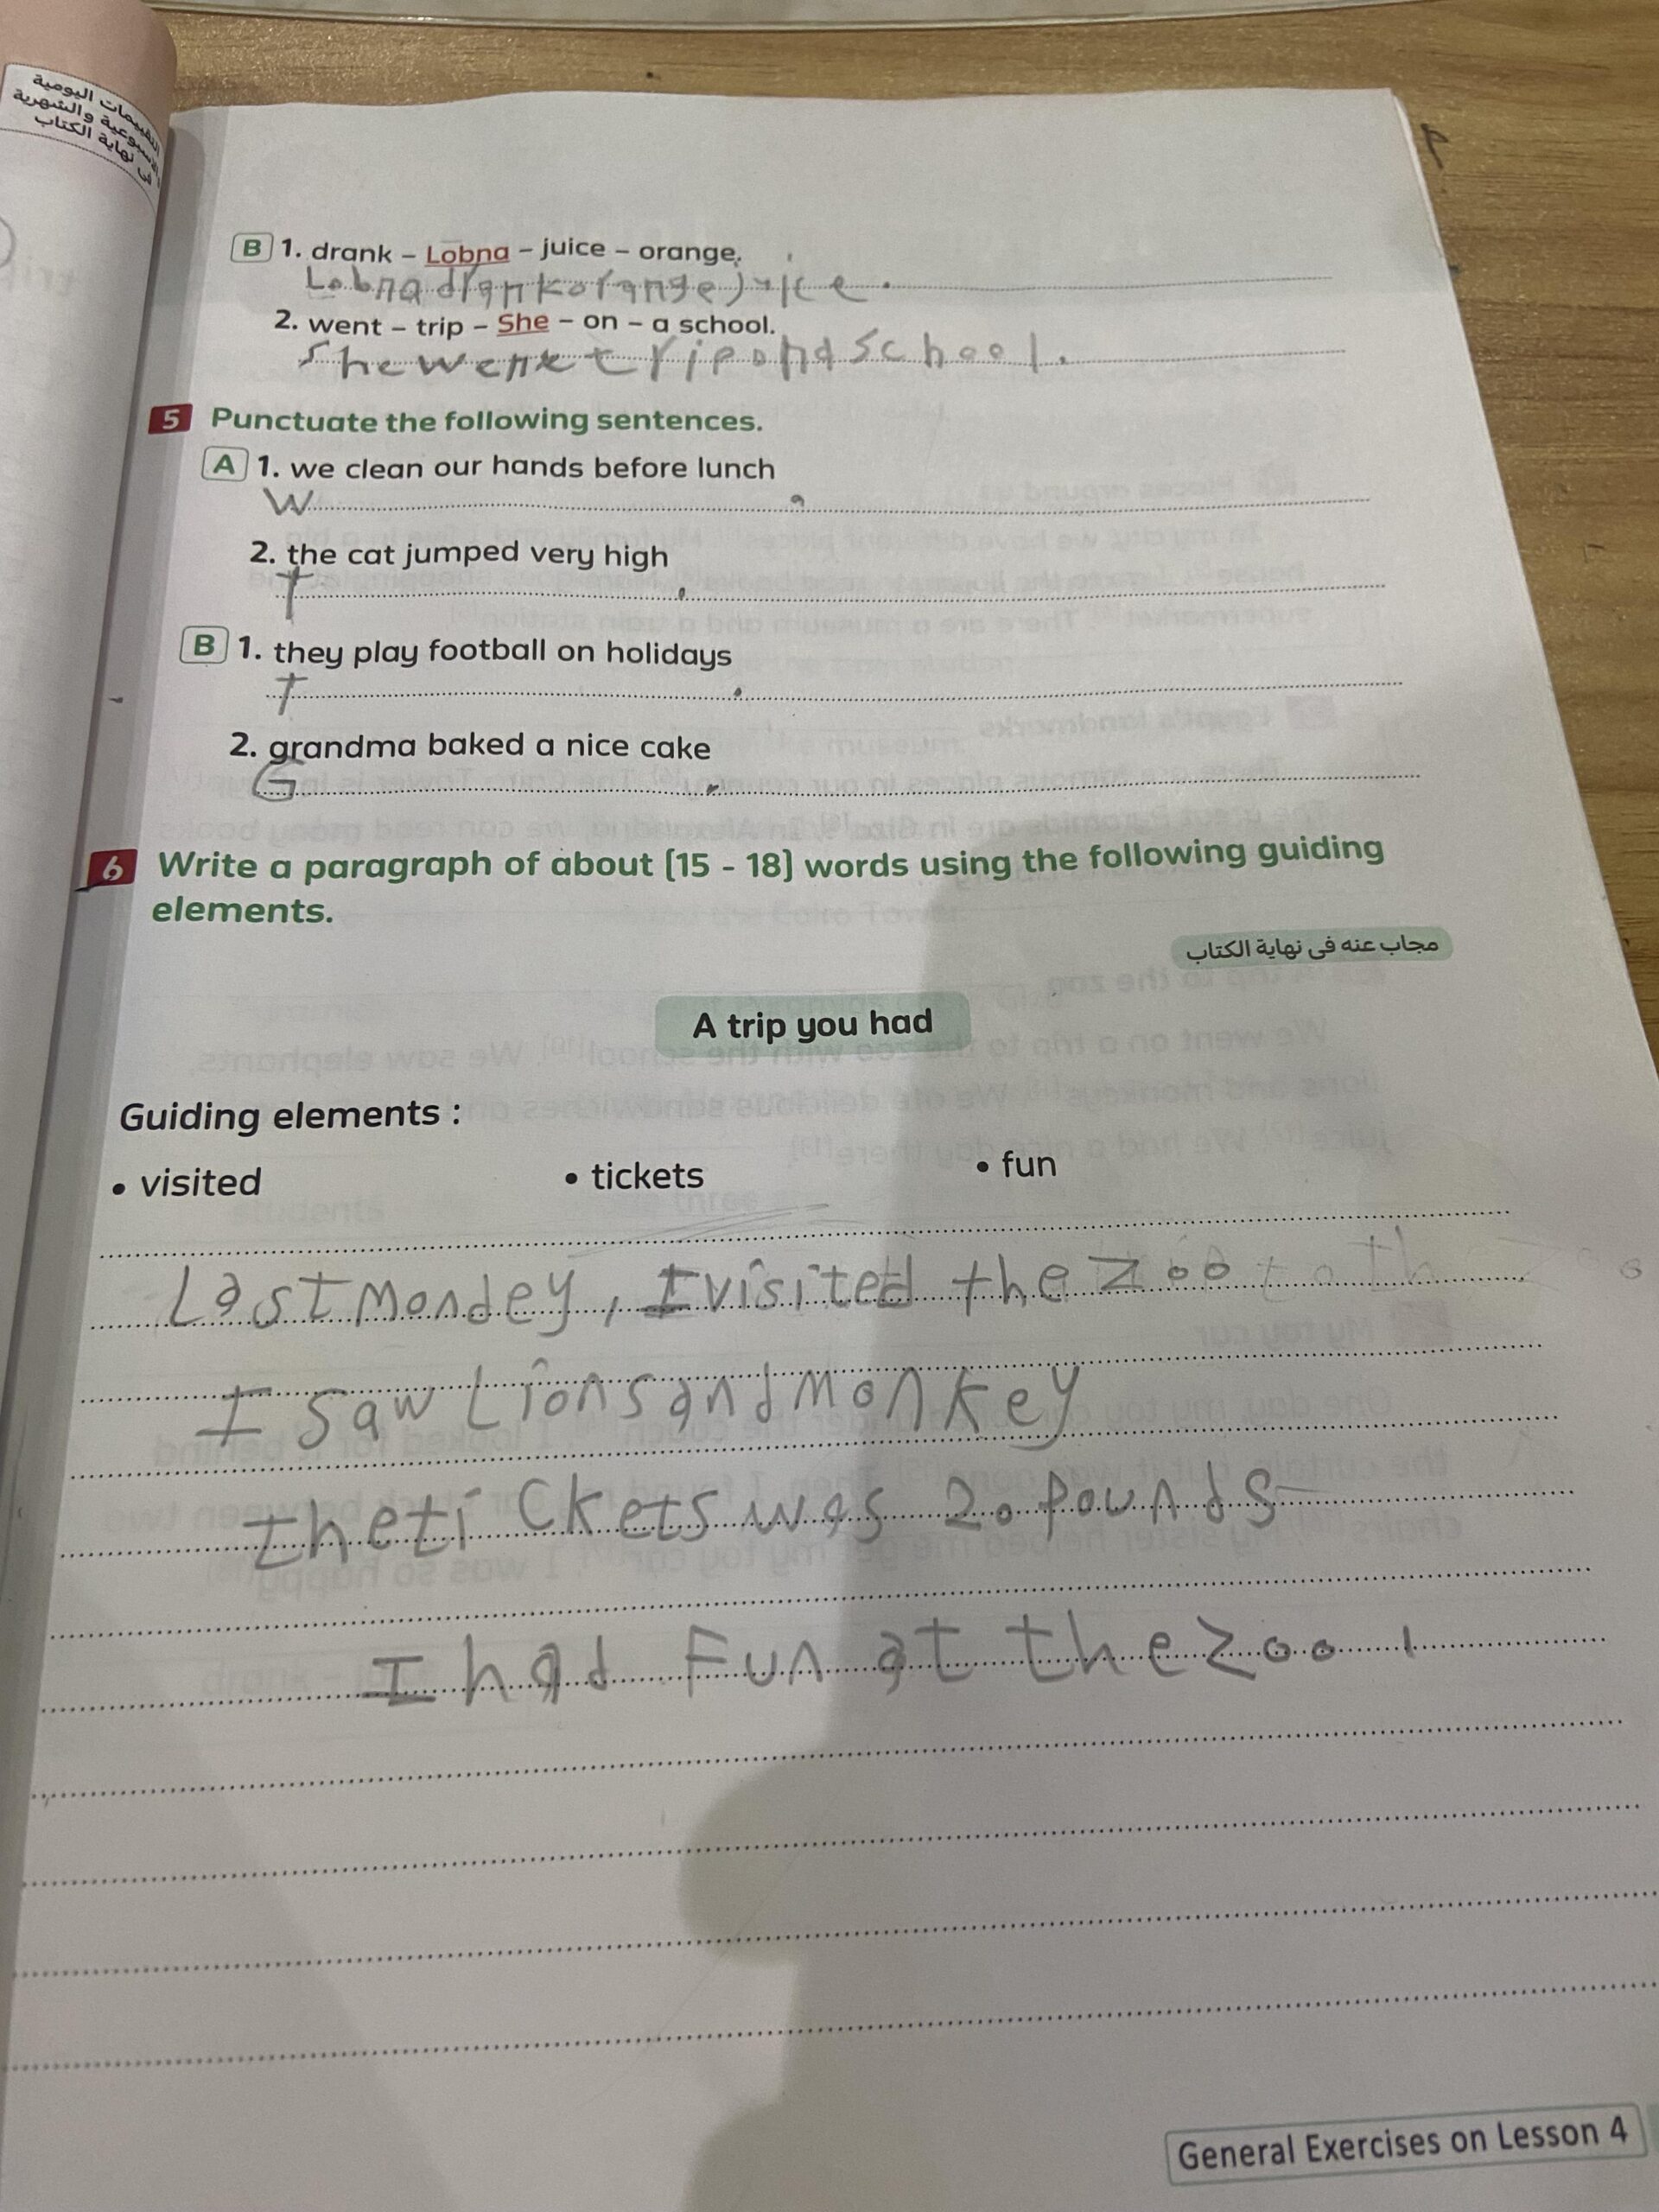 التقييمات اليومية
والأسبوعية والشهرية
فى نهاية الكتاب
B 1. drank – Lobna – juice – orange.
Lobna drank orange juice.
2. went – trip – She – on – a school.
She went trip on a school.
5 Punctuate the following sentences.
A 1. we clean our hands before lunch
W .
2. the cat jumped very high
T .
B 1. they play football on holidays
T .
2. grandma baked a nice cake
G .
6 Write a paragraph of about (15 - 18) words using the following guiding
elements.
مجاب عنه فى نهاية الكتاب
A trip you had
Guiding elements :
• visited • tickets • fun
Last Mondey, I visited the Zoo
I saw Lions and monkey
the tickets was 20 pounds
I had Fun at the Zoo .
General Exercises on Lesson 4